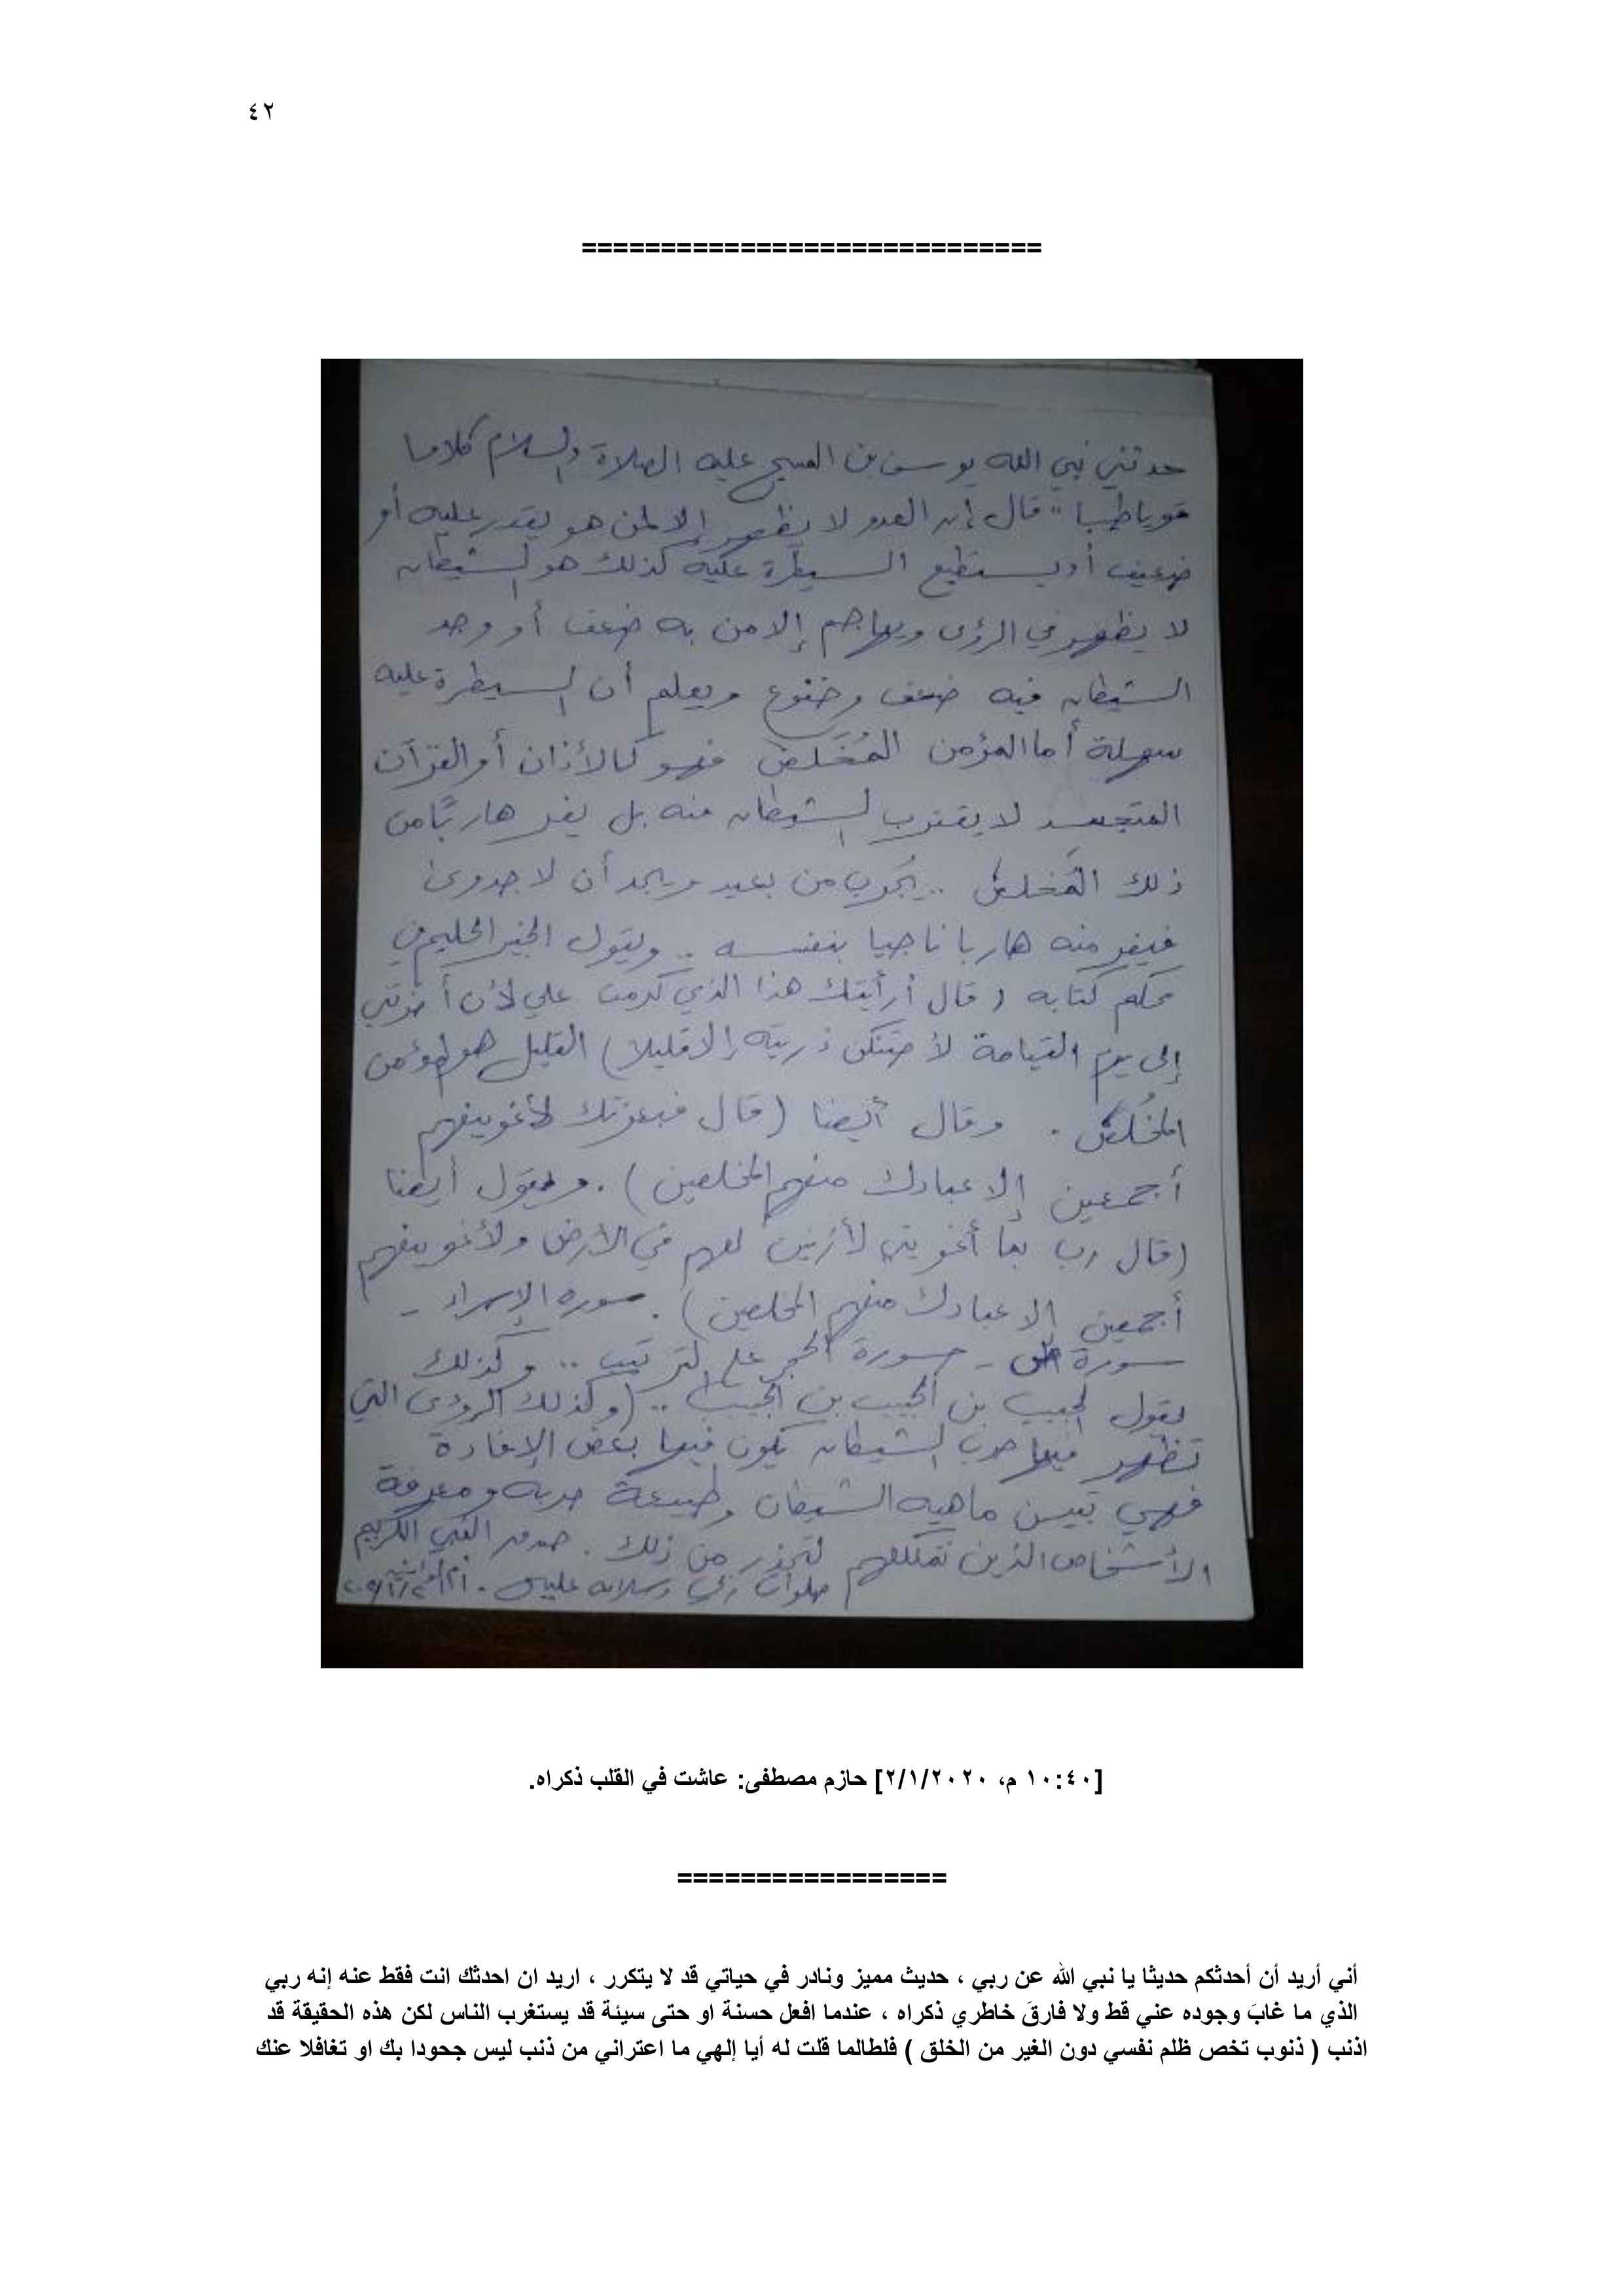 ٤٢
=============================
حدثني نبي الله يوسف بن المسيح عليه الصلاة والسلام كلاما
قويا طيبا " قال إن العدو لا يظهر إلا لمن هو يقدر عليه أو
ضعيف أو يستطيع السيطرة عليه كذلك هو الشيطان
لا يظهر في الرؤى ويهاجم إلا من به ضعف أو وجد
الشيطان فيه ضعف وخنوع ويعلم أن السيطرة عليه
سهلة أما المؤمن المُخلَص فهو كالأذان أو القرآن
المتجسد لا يقترب الشيطان منه بل يفر هاربًا من
ذلك المُخلَص .. يُجرب من بعيد ويجد أن لا جدوى
فيفر منه هاربا ناجيا بنفسه .. ويقول الخبير الحليم في
محكم كتابه ( قال أرأيتك هذا الذي كرمت علي لأن أخرتني
إلى يوم القيامة لأحتنكن ذريته إلا قليلا) القليل هو المؤمن
المُخلَص . وقال أيضا (قال فبعزتك لأغوينهم
أجمعين إلا عبادك منهم المخلصين) . ويقول أيضا
(قال رب بما أغويتني لأزينن لهم في الأرض ولأغوينهم
أجمعين إلا عبادك منهم المخلصين) . سورة الإسراء -
سورة ص - سورة الحجر على الترتيب .. وكذلك
يقول الحبيب بن الحبيب بن الحبيب .. (وكذلك الرؤى التي
تظهر فيها حرب الشيطان يكون فيها بعض الإفادة
فهي تبين ماهية الشيطان وطبيعة حربه ومعرفة
الأشخاص الذين تمثلهم لتحذر من ذلك . صدق النبي الكريم
صلوات ربي وسلامه عليه .
[١٠:٤٠ م، ٢/١/٢٠٢٠] حازم مصطفى: عاشت في القلب ذكراه.
=================
أني أريد أن أحدثكم حديثا يا نبي الله عن ربي ، حديث مميز ونادر في حياتي قد لا يتكرر ، اريد ان احدثك انت فقط عنه إنه ربي
الذي ما غابَ وجوده عني قط ولا فارقَ خاطري ذكراه ، عندما افعل حسنة او حتى سيئة قد يستغرب الناس لكن هذه الحقيقة قد
اذنب ( ذنوب تخص ظلم نفسي دون الغير من الخلق ) فلطالما قلت له أيا إلهي ما اعتراني من ذنب ليس جحودا بك او تغافلا عنك